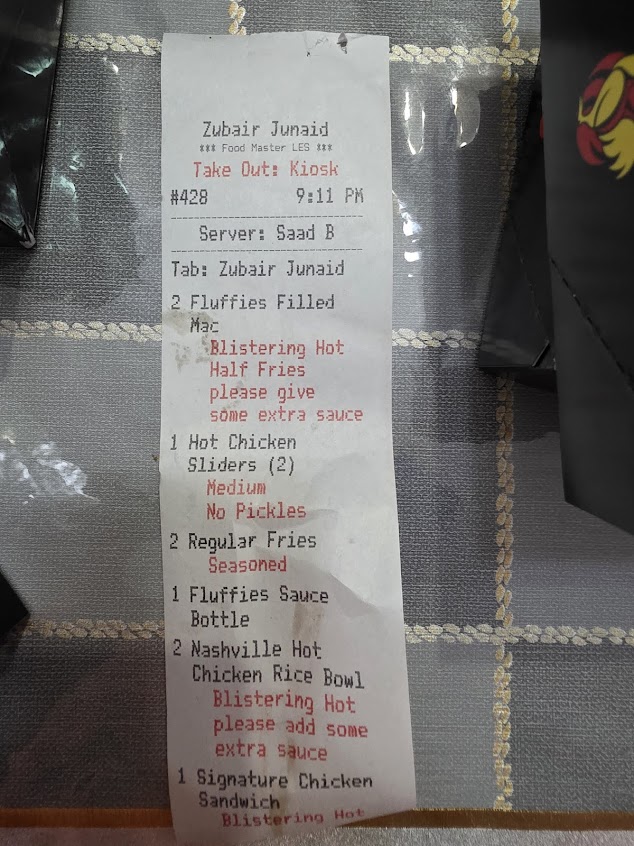 Zubair Junaid
*** Food Master LES ***
Take Out: Kiosk
#428 9:11 PM
Server: Saad B
Tab: Zubair Junaid
2 Fluffies Filled
Mac
Blistering Hot
Half Fries
please give
some extra sauce
1 Hot Chicken
Sliders (2)
Medium
No Pickles
2 Regular Fries
Seasoned
1 Fluffies Sauce
Bottle
2 Nashville Hot
Chicken Rice Bowl
Blistering Hot
please add some
extra sauce
1 Signature Chicken
Sandwich
Blistering Hot